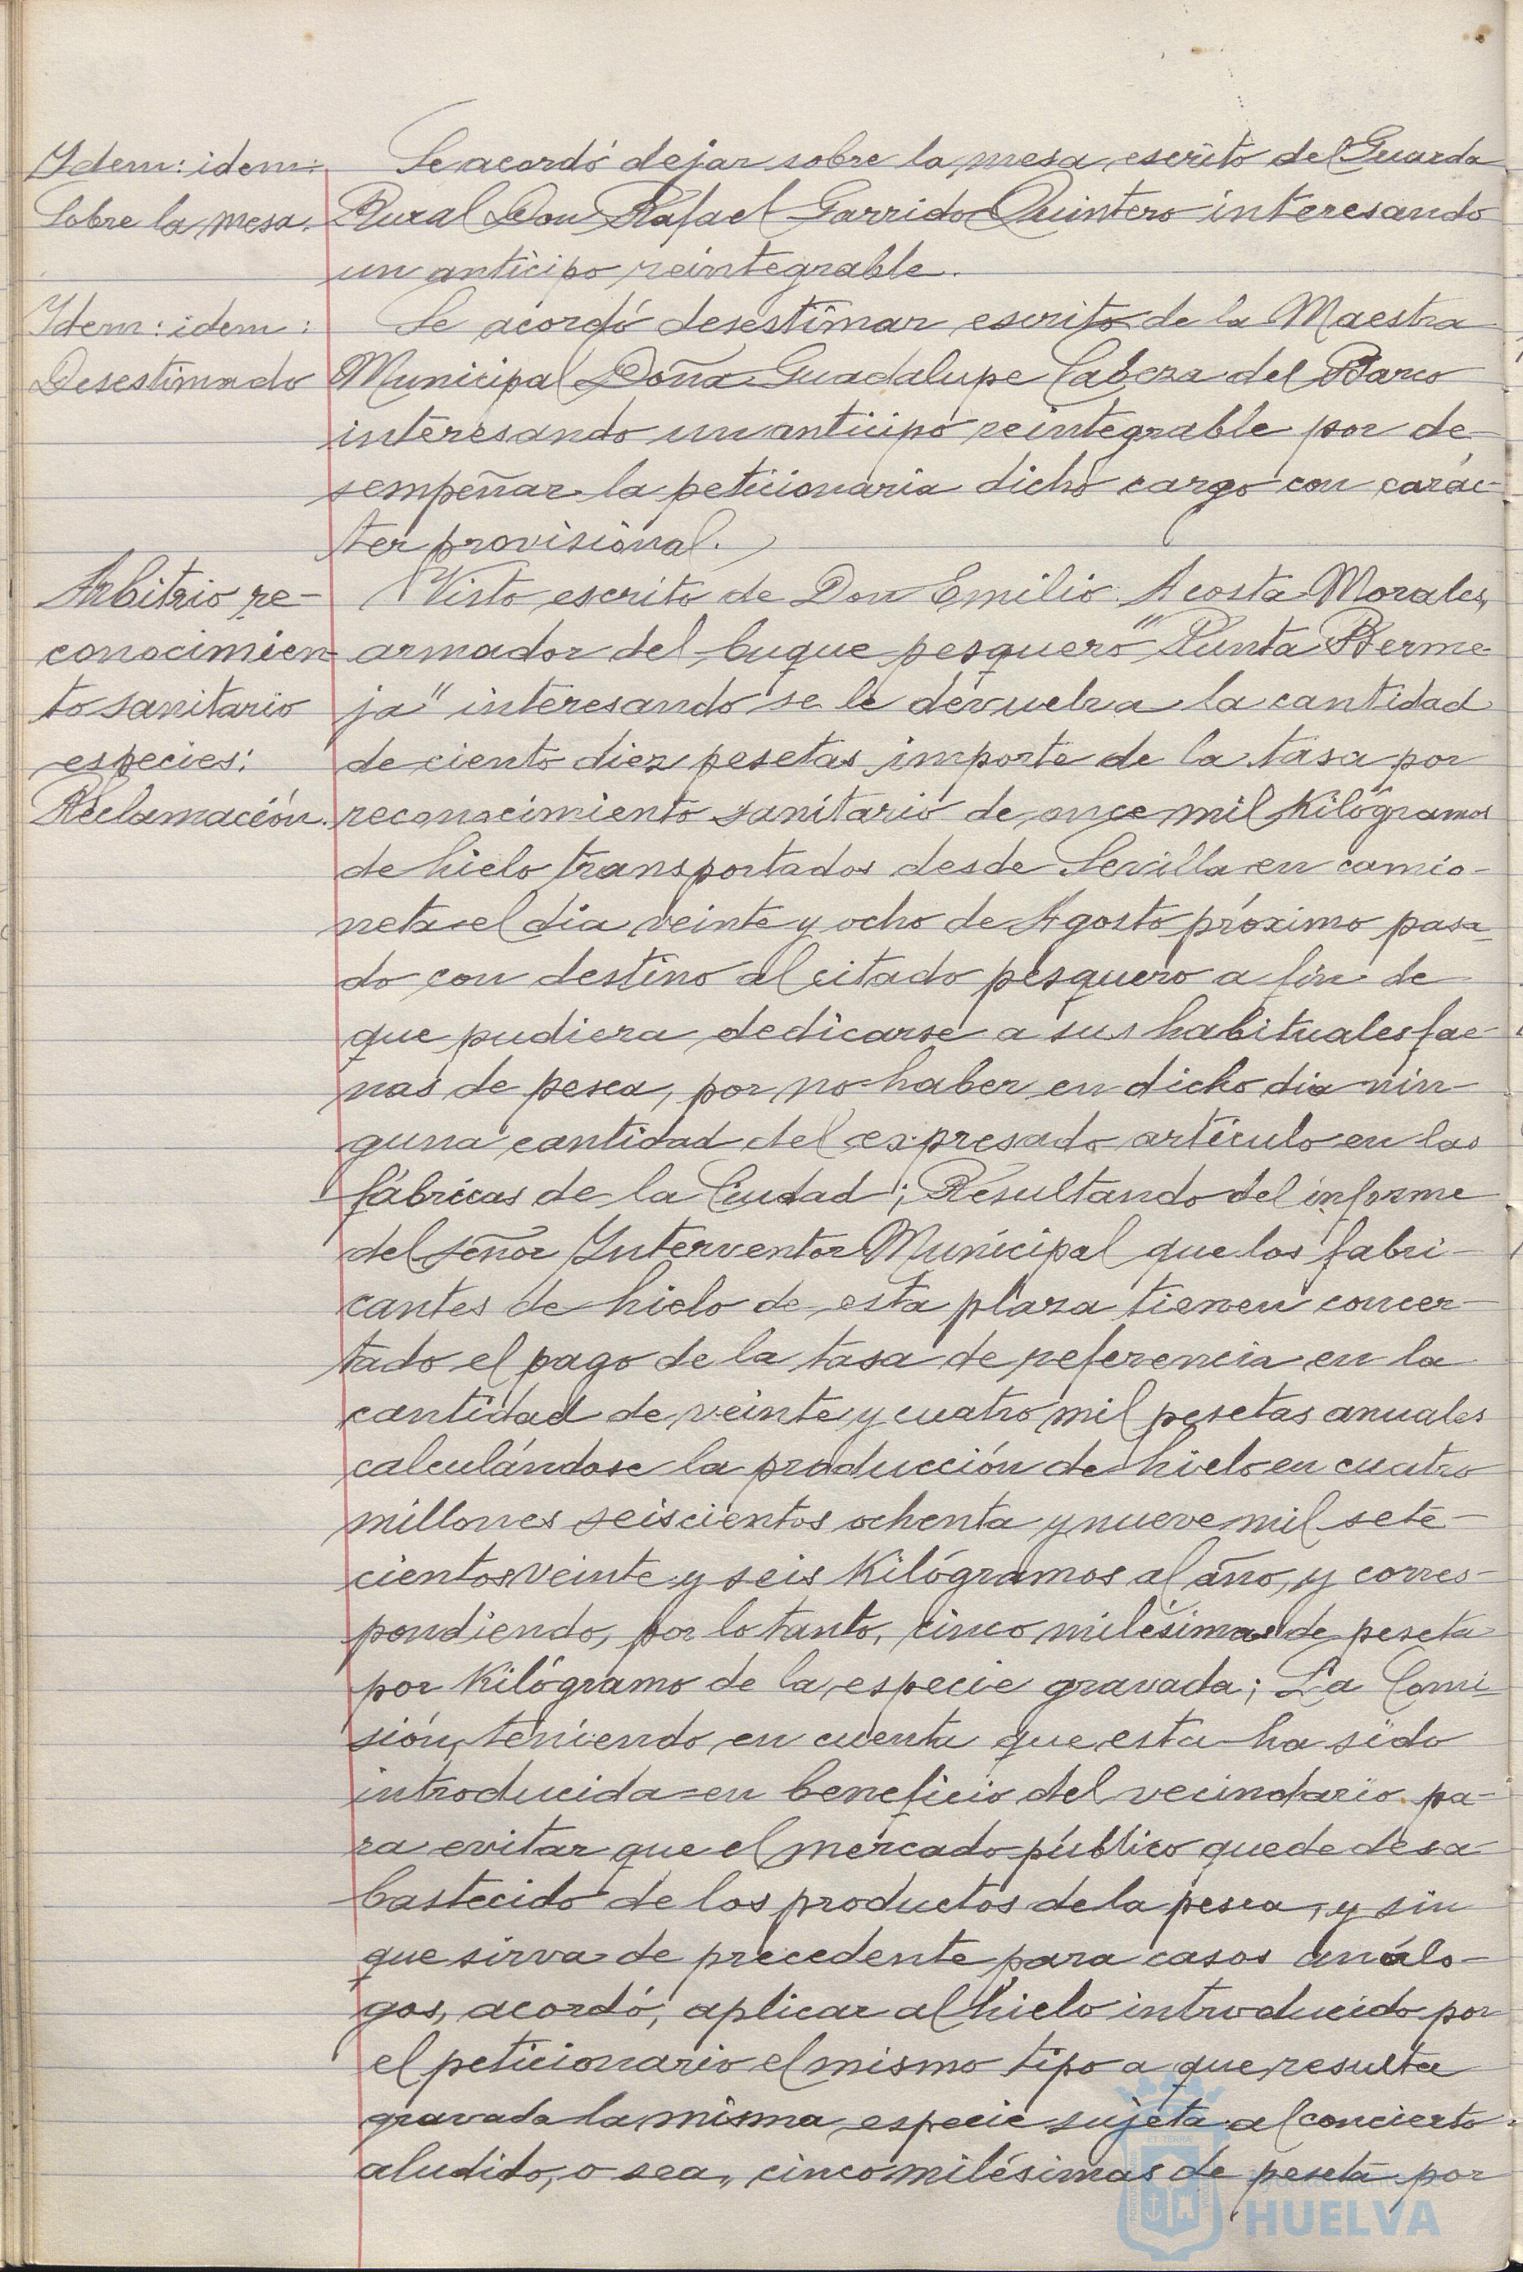 Ydem: idem:
Sobre la mesa.
Se acordó dejar sobre la mesa escrito del Guarda
Rural Don Rafael Garrido Quintero interesando
un anticipo reintegrable.
Ydem: idem:
Desestimado
Se acordó desestimar escrito de la Maestra
Municipal Doña Guadalupe Cabeza del Barco
interesando un anticipo reintegrable por de-
sempeñar la peticionaria dicho cargo con carác-
ter provisional.
Arbitrio re-
conocimien-
to sanitario
especies:
Reclamación.
Visto escrito de Don Emilio Acosta Morales,
armador del buque pesquero "Punta Berme-
ja" interesando se le devuelva la cantidad
de ciento diez pesetas importe de la tasa por
reconocimiento sanitario de once mil Kilógramos
de hielo transportados desde Sevilla en camio-
neta el dia veinte y ocho de Agosto próximo pasa-
do con destino al citado pesquero a fin de
que pudiera dedicarse a sus habituales fae-
nas de pesca, por no haber en dicho dia nin-
guna cantidad del expresado artículo en las
fábricas de la Ciudad; Resultando del informe
del señor Interventor Municipal que los fabri-
cantes de hielo de esta plaza tienen concer-
tado el pago de la tasa de referencia en la
cantidad de veinte y cuatro mil pesetas anuales
calculándose la producción de hielo en cuatro
millones seiscientos ochenta y nueve mil sete-
cientos veinte y seis Kilógramos al año, y corres-
pondiendo, por lo tanto, cinco milésimas de peseta
por Kilógramo de la especie gravada; La Comi-
sión, teniendo en cuenta que esta ha sido
introducida en beneficio del vecindario pa-
ra evitar que el mercado público quede desa-
bastecido de los productos de la pesca, y sin
que sirva de precedente para casos análo-
gos, acordó, aplicar al hielo introducido por
el peticionario el mismo tipo a que resulta
gravada la misma especie sujeta al concierto
aludido, o sea, cinco milésimas de peseta por
Ayuntamiento de
HUELVA